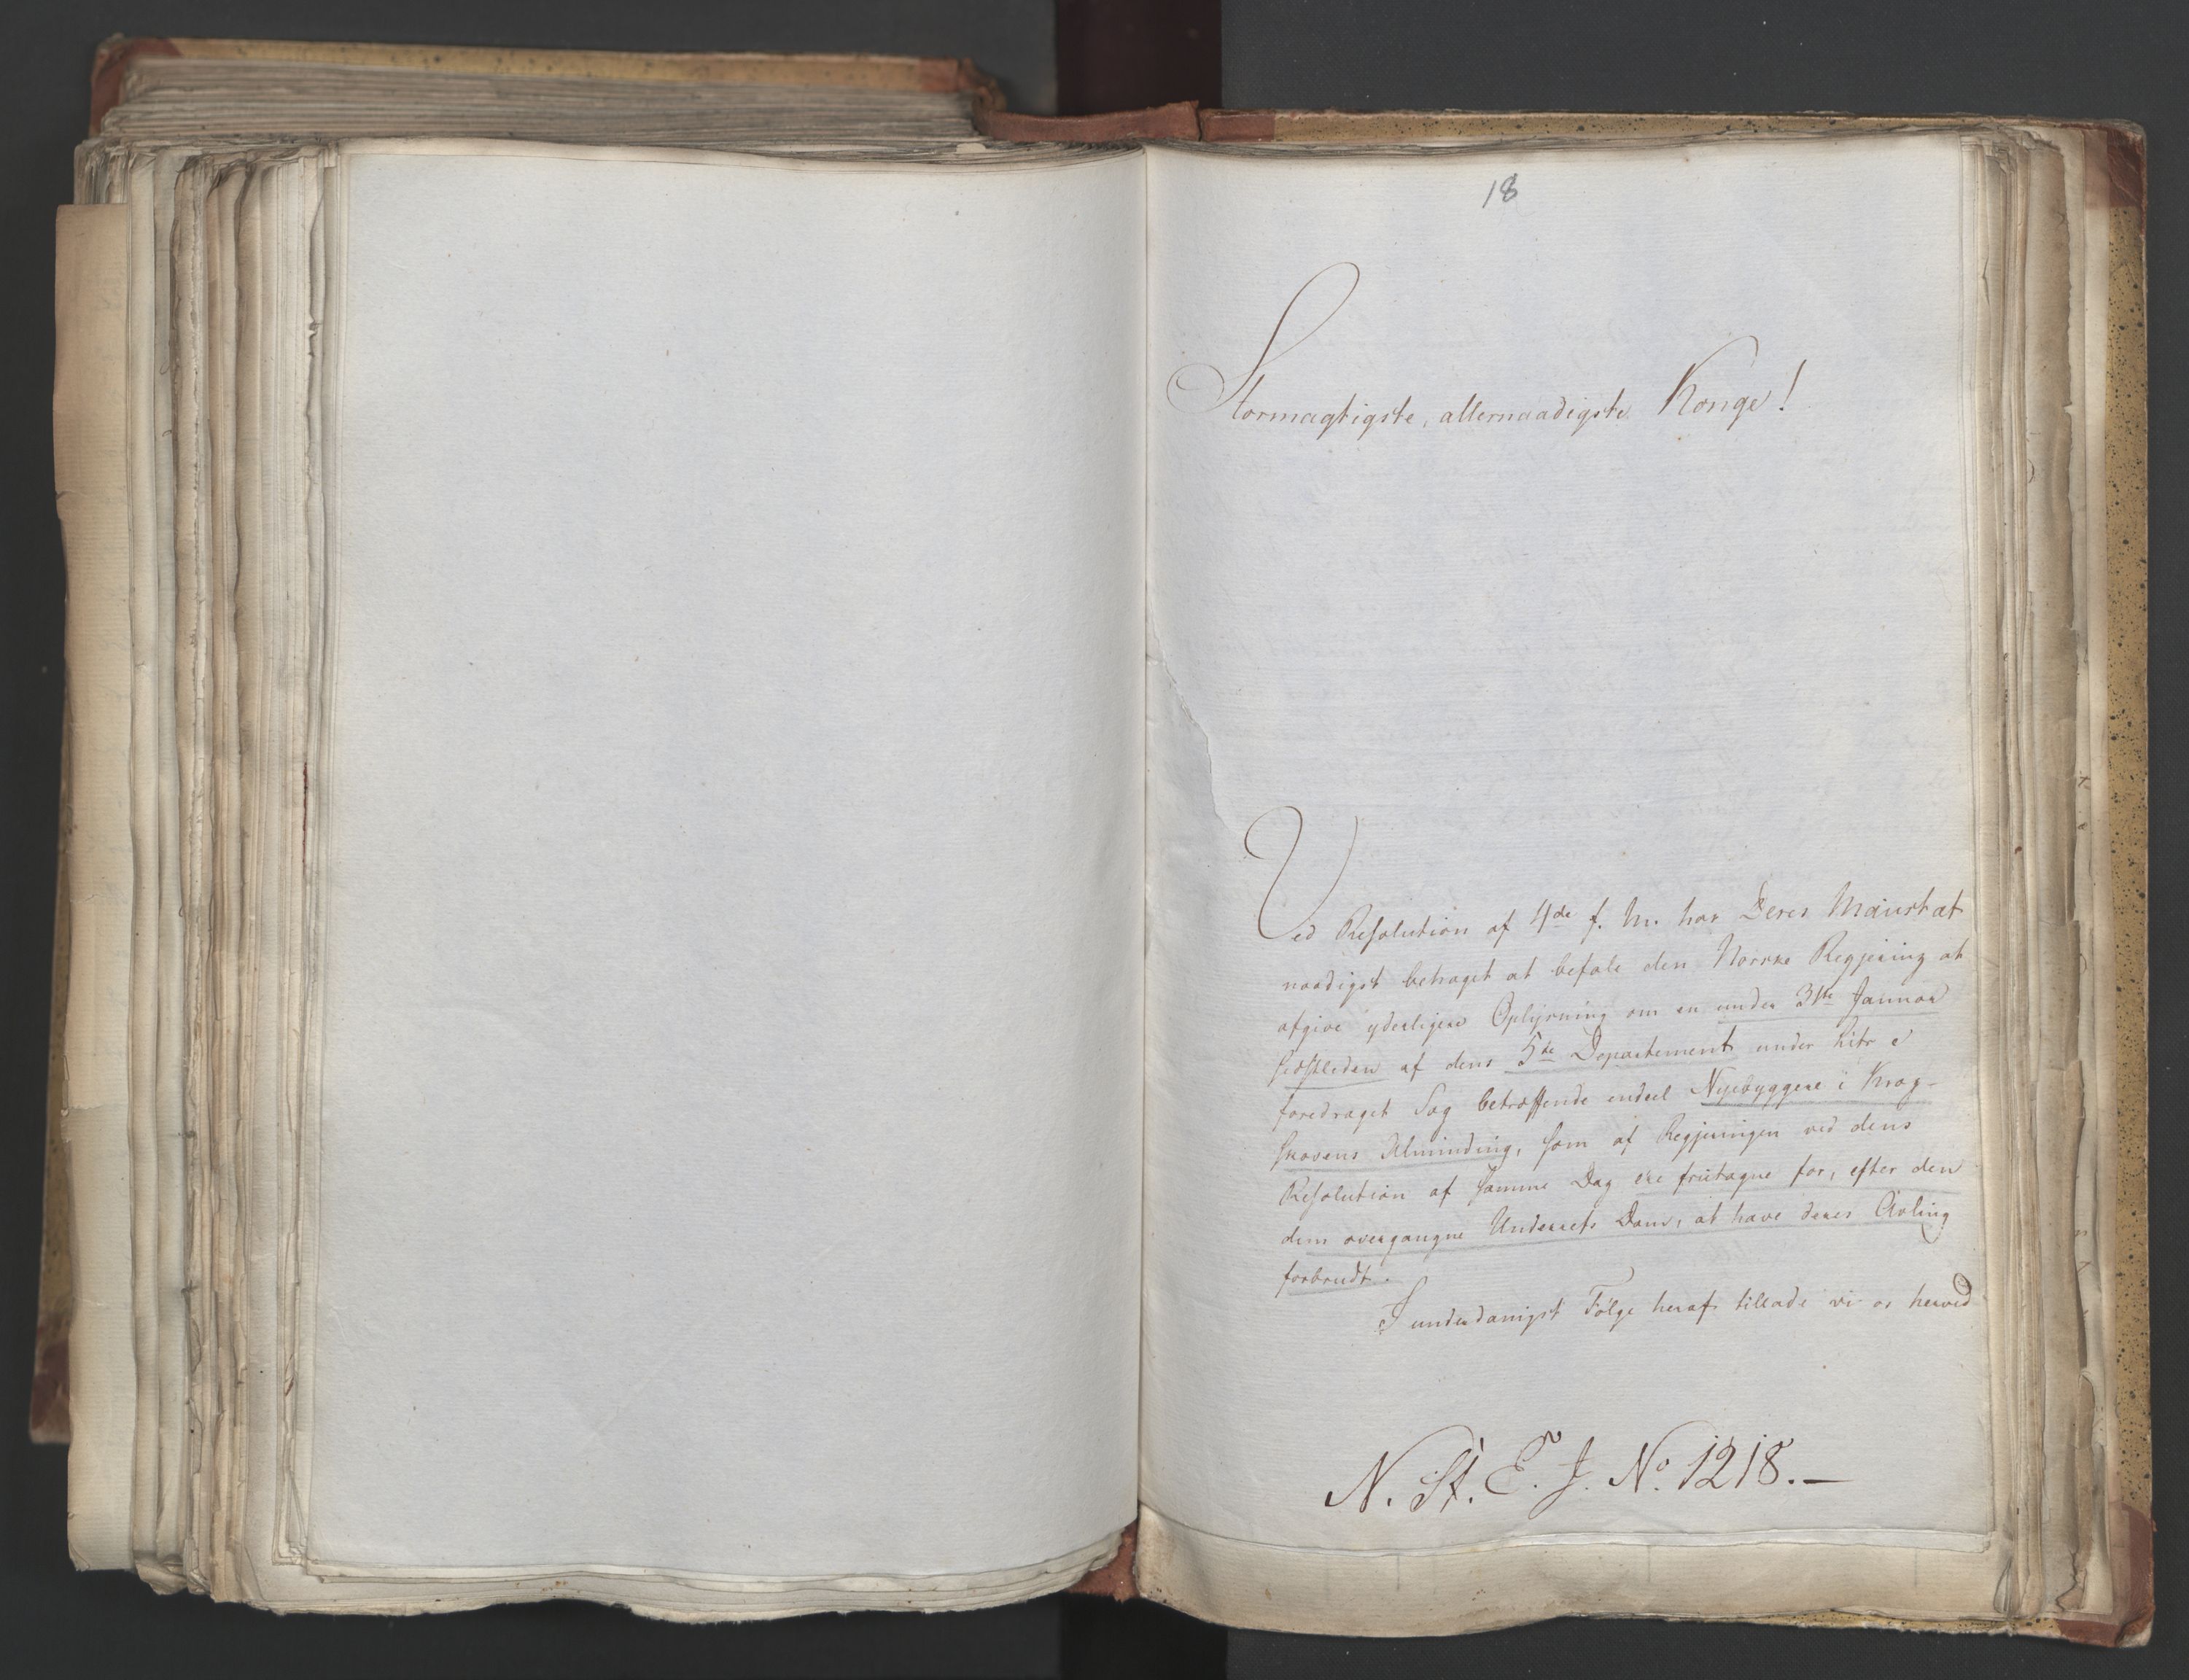 18
Stormagtigste, allernaadigste Konge!
Ved Resolution af 4de f. M. har Deres Maiestæt
naadigst behaget at befale den Norske Regjering at
afgive yderligere Oplysning om en under 31te Januar
sidstleden af dens 5te Departement under Litr c
foredraget Sag betræffende endeel Nyebyggere i Krog-
skovens Alminding, som af Regjeringen ved dens
Resolution af samme Dag ere fritagne for, efter den
dem overgangne Underrets Dom, at have deres Avling
forbrudt.
I underdanigst Følge heraf tillade vi os herved
N. St. E. J. No. 1218.—